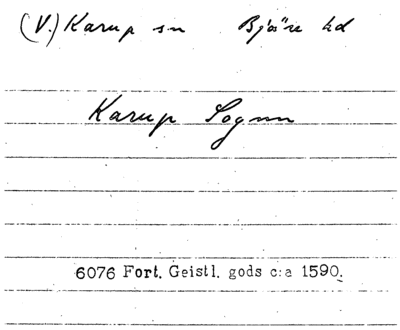 (V.) Karup sn Bjäre hd
Karup Sognn
6076 Fort. Geistl. gods c:a 1590.